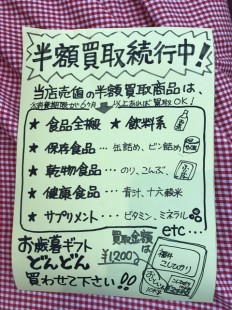 半額買取続行中!
当店売価の半額買取商品は、
消費期限が6ヶ月以上あれば買取OK!
★ 食品全搬 ★ 飲料系
★ 保存食品… 缶詰め、ビン詰め
★ 乾物食品… のり、こんぶ、
★ 健康食品… 青汁、十六穀米
★ サプリメント… ビタミン、ミネラル
etc…
お歳暮ギフト
どんどん
買わせて下さい!!
買取金額は
¥1,200
福井
こしひかり